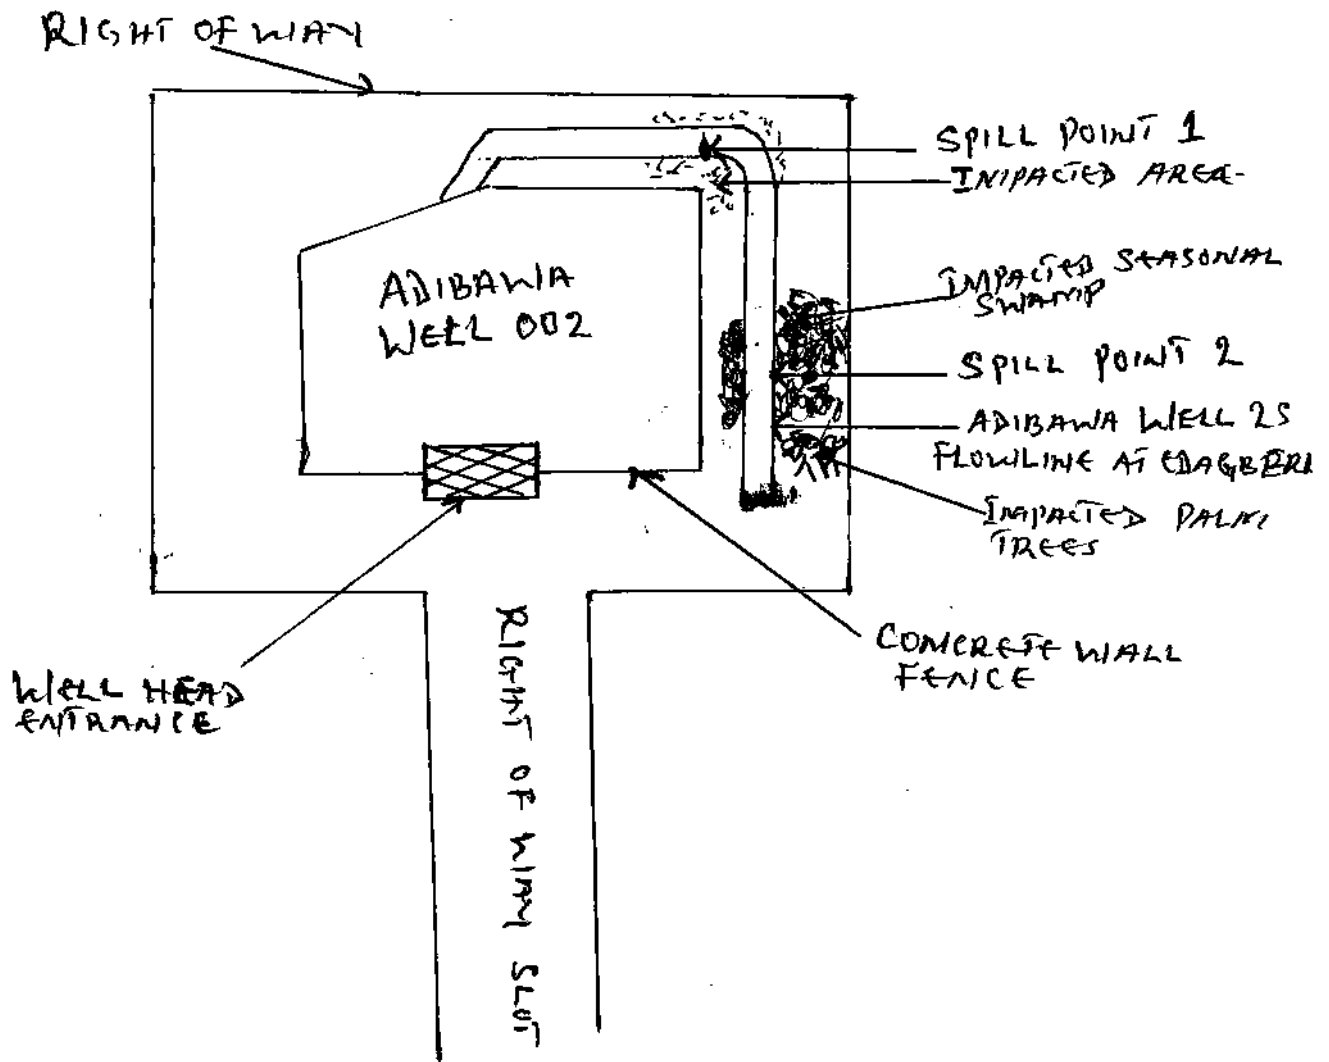 RIGHT OF WAY
SPILL POINT 1
IMPACTED AREA
IMPACTED SEASONAL
SWAMP
ADIBAWA
WELL 002
SPILL POINT 2
ADIBAWA WELL 2S
FLOWLINE AT EDAGBERI
IMPACTED PALM
TREES
CONCRETE WALL
FENCE
WELL HEAD
ENTRANCE
RIGHT OF WAY SLOT